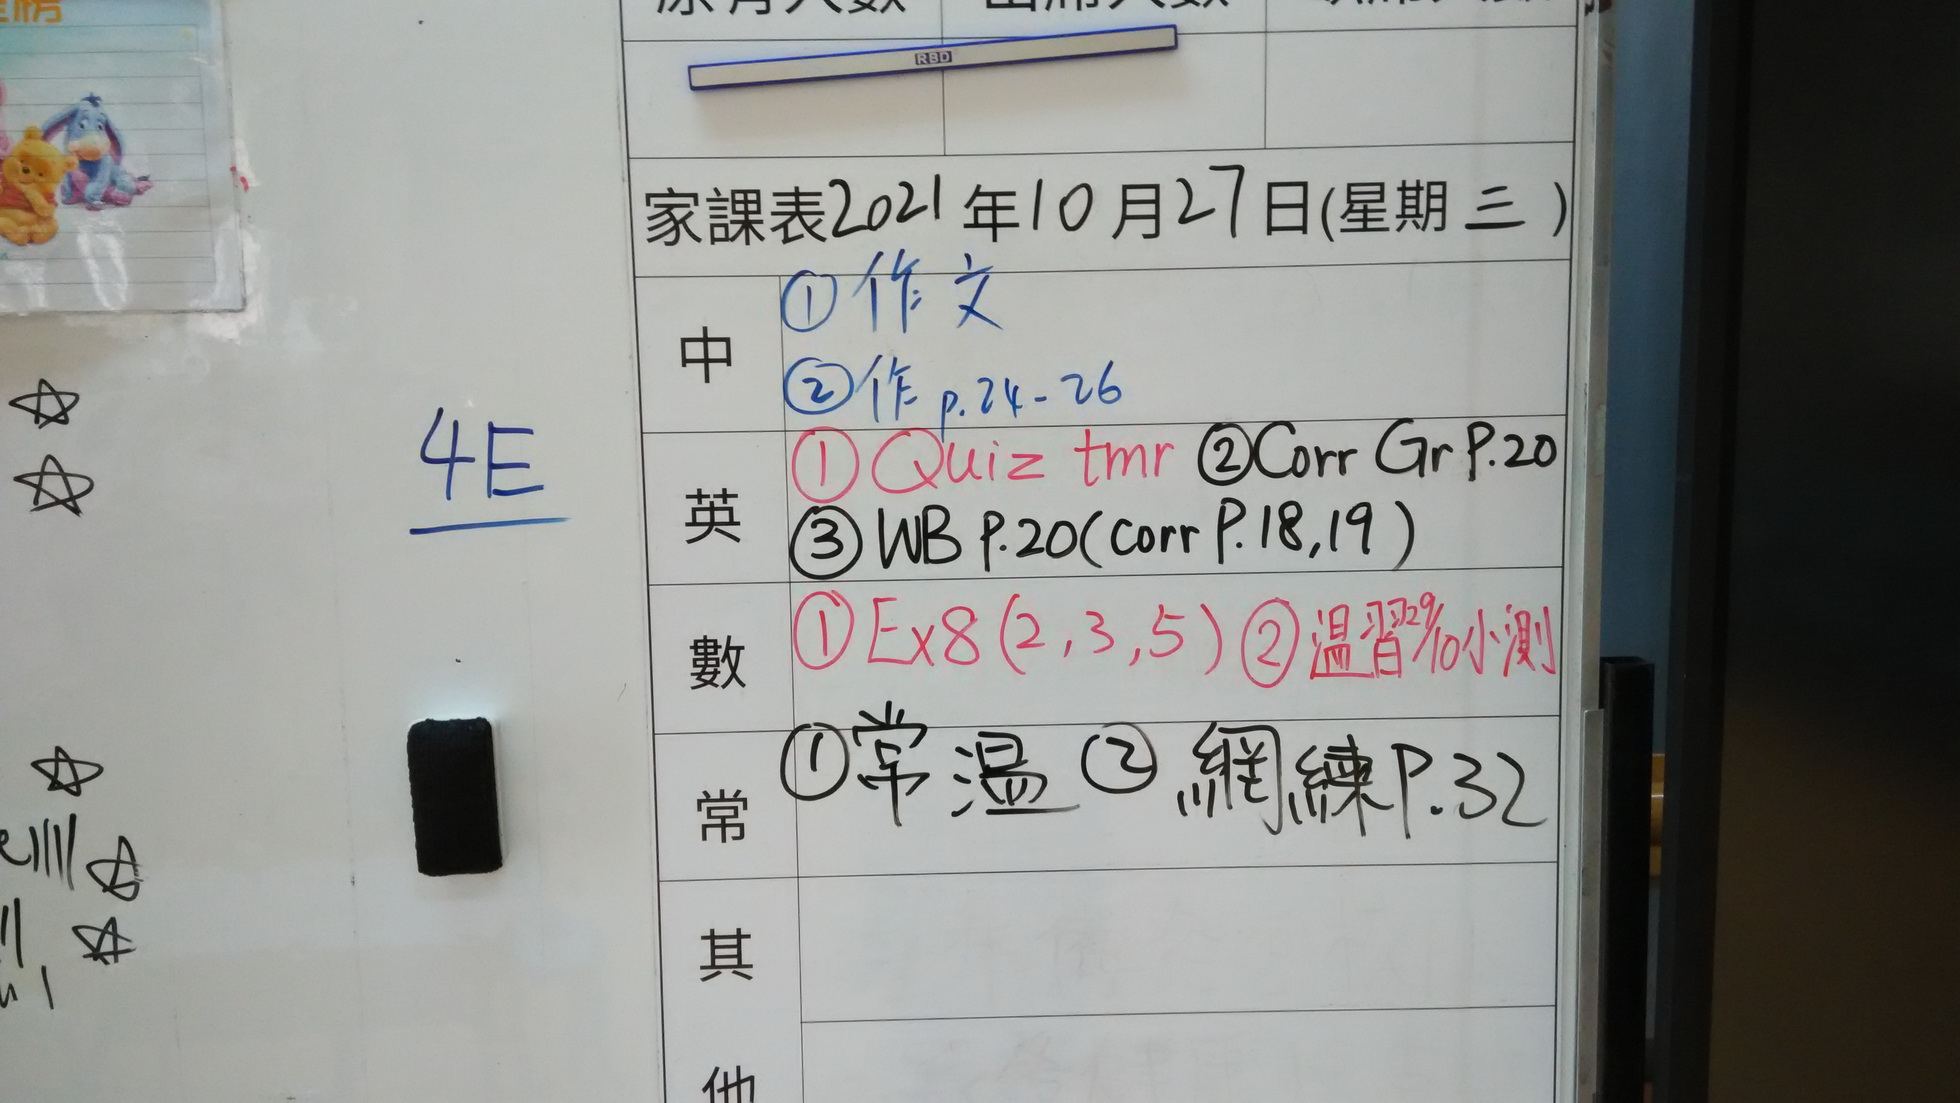 RBD
家課表2021年10月27日(星期三)
中
①作文
②作p.24-26
4E
英
①Quiz tmr ②Corr Gr P.20
③WB P.20(corr P.18,19)
數
①Ex8(2,3,5) ②温習29/10小測
常
①常温 ②網練P.32
其
他